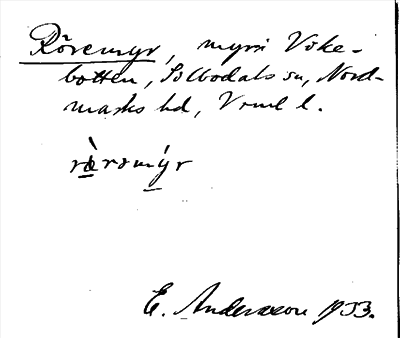 Röremyr, myr i Vike-
botten, Silbodals sn, Nord-
marks hd, Vrml l.
rœ̀rəmýr
E. Andersson 1933.